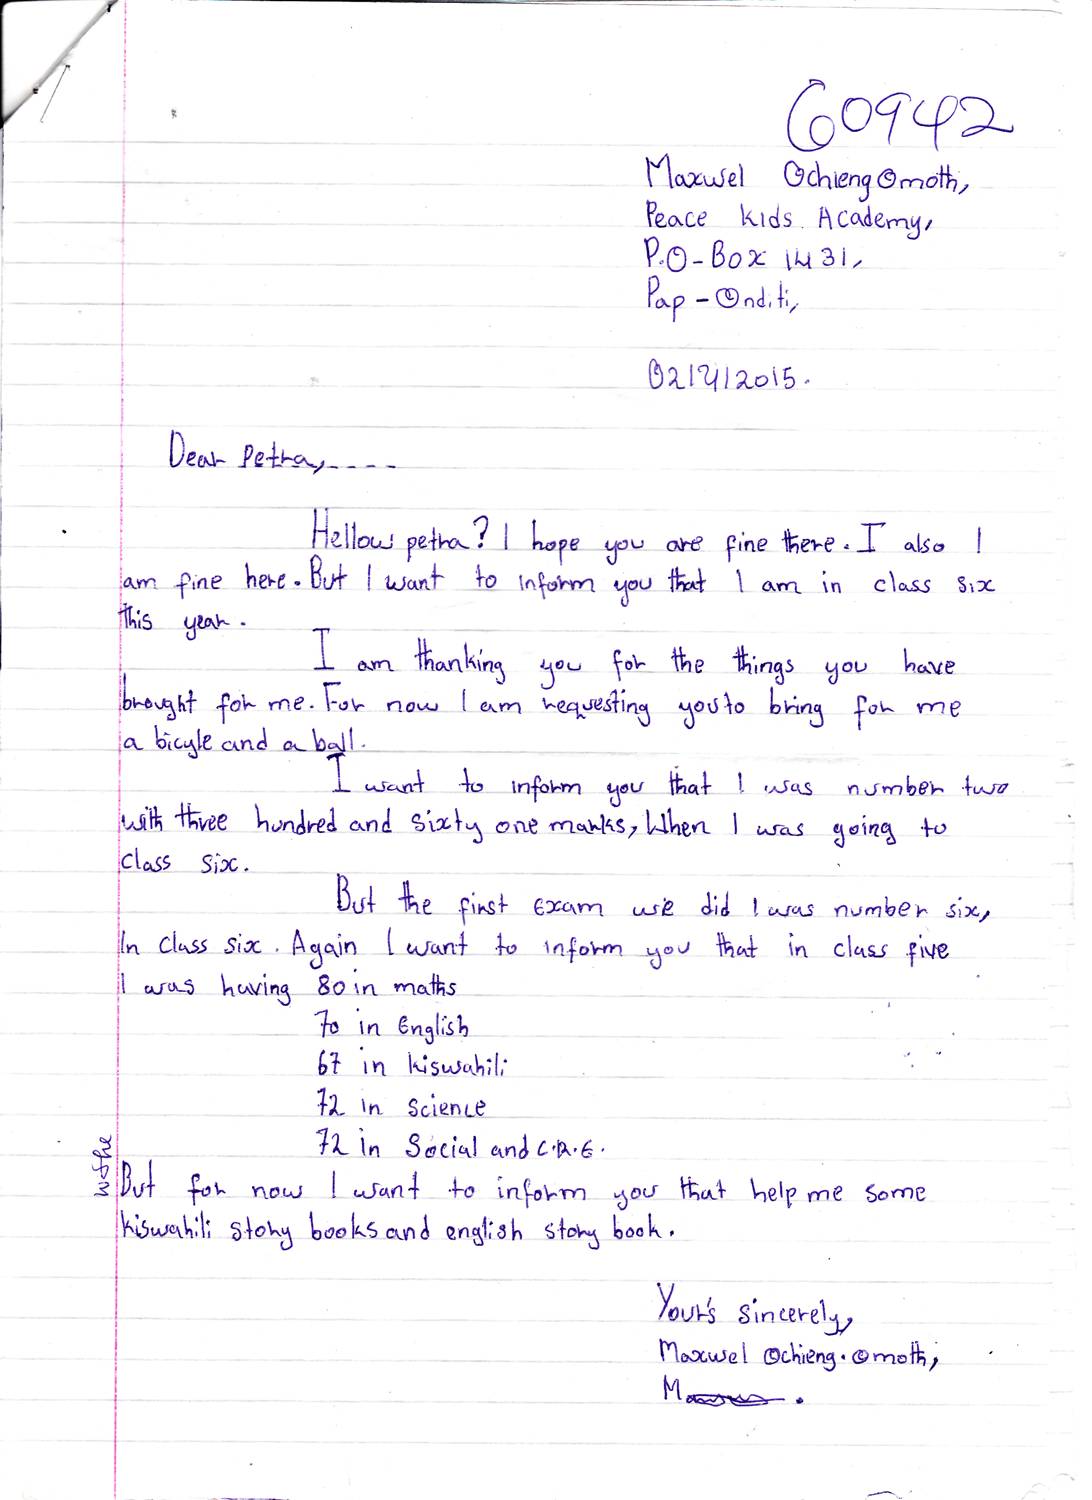 60942
Maxwel Ochieng Omoth,
Peace Kids. Academy,
P.O-Box 1431,
Pap - Onditi,
02/4/2015.
Dear Petra,----
Hellow petra? I hope you are fine there. I also I
am fine here. But I want to inform you that I am in class six
this year.
I am thanking you for the things you have
brought for me. For now I am requesting you to bring for me
a bicyle and a ball.
I want to inform you that I was number two
with three hundred and sixty one marks, When I was going to
class six.
But the first exam we did I was number six,
In class six. Again I want to inform you that in class five
I was having 80 in maths
70 in English
67 in kiswahili
72 in science
72 in Social and C.R.E.
But for now I want to inform you that help me some
kiswahili story books and english story book.
Your's sincerely,
Maxwel Ochieng. Omoth,